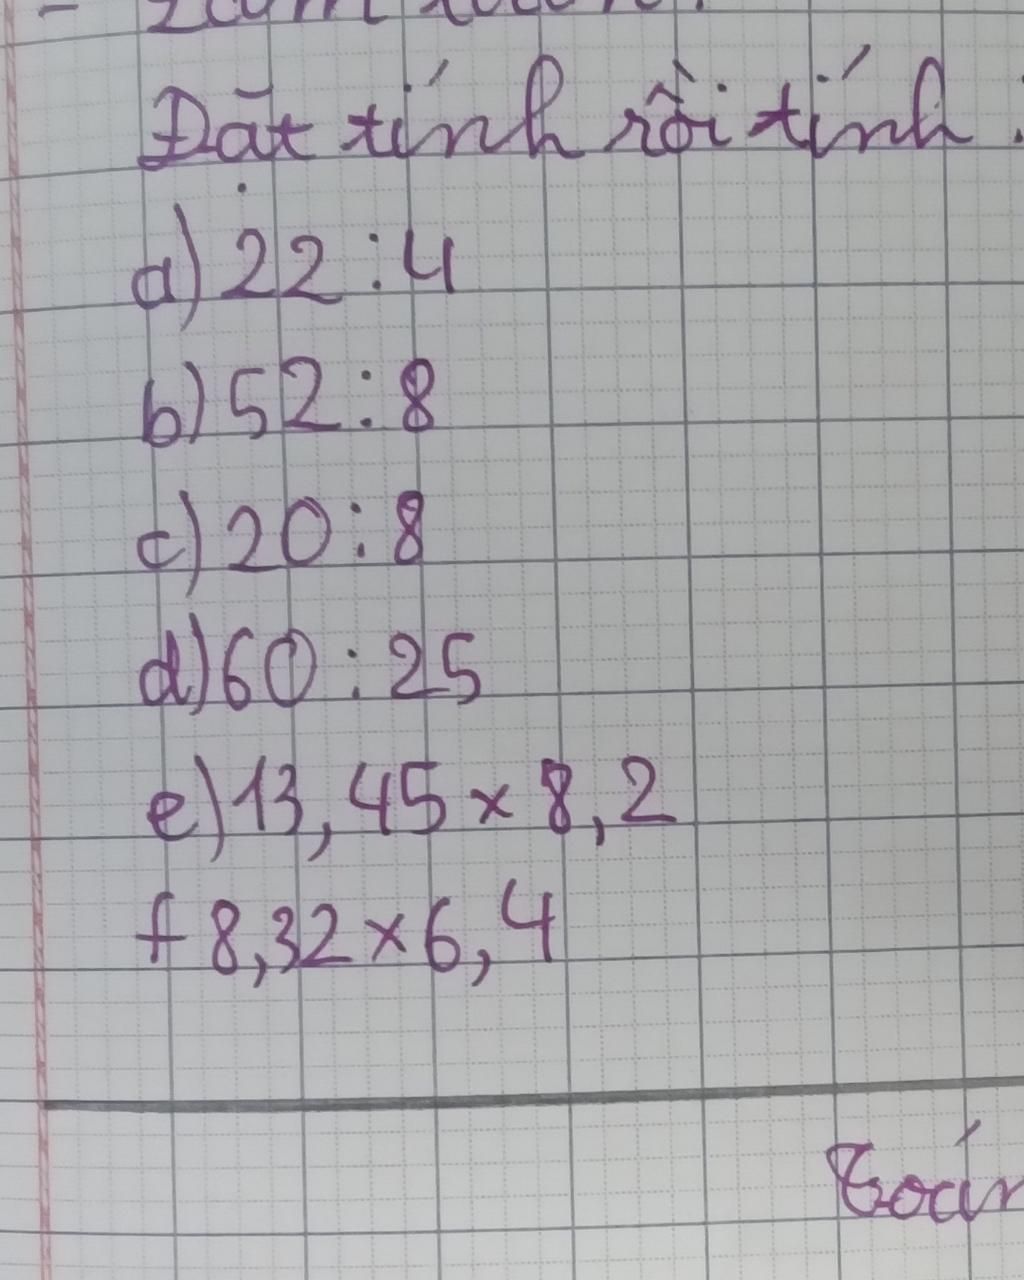 Đặt tính rồi tính:
a) 22 : 4
b) 52 : 8
c) 20 : 8
d) 60 : 25
e) 13,45 x 8,2
f 8,32 x 6,4